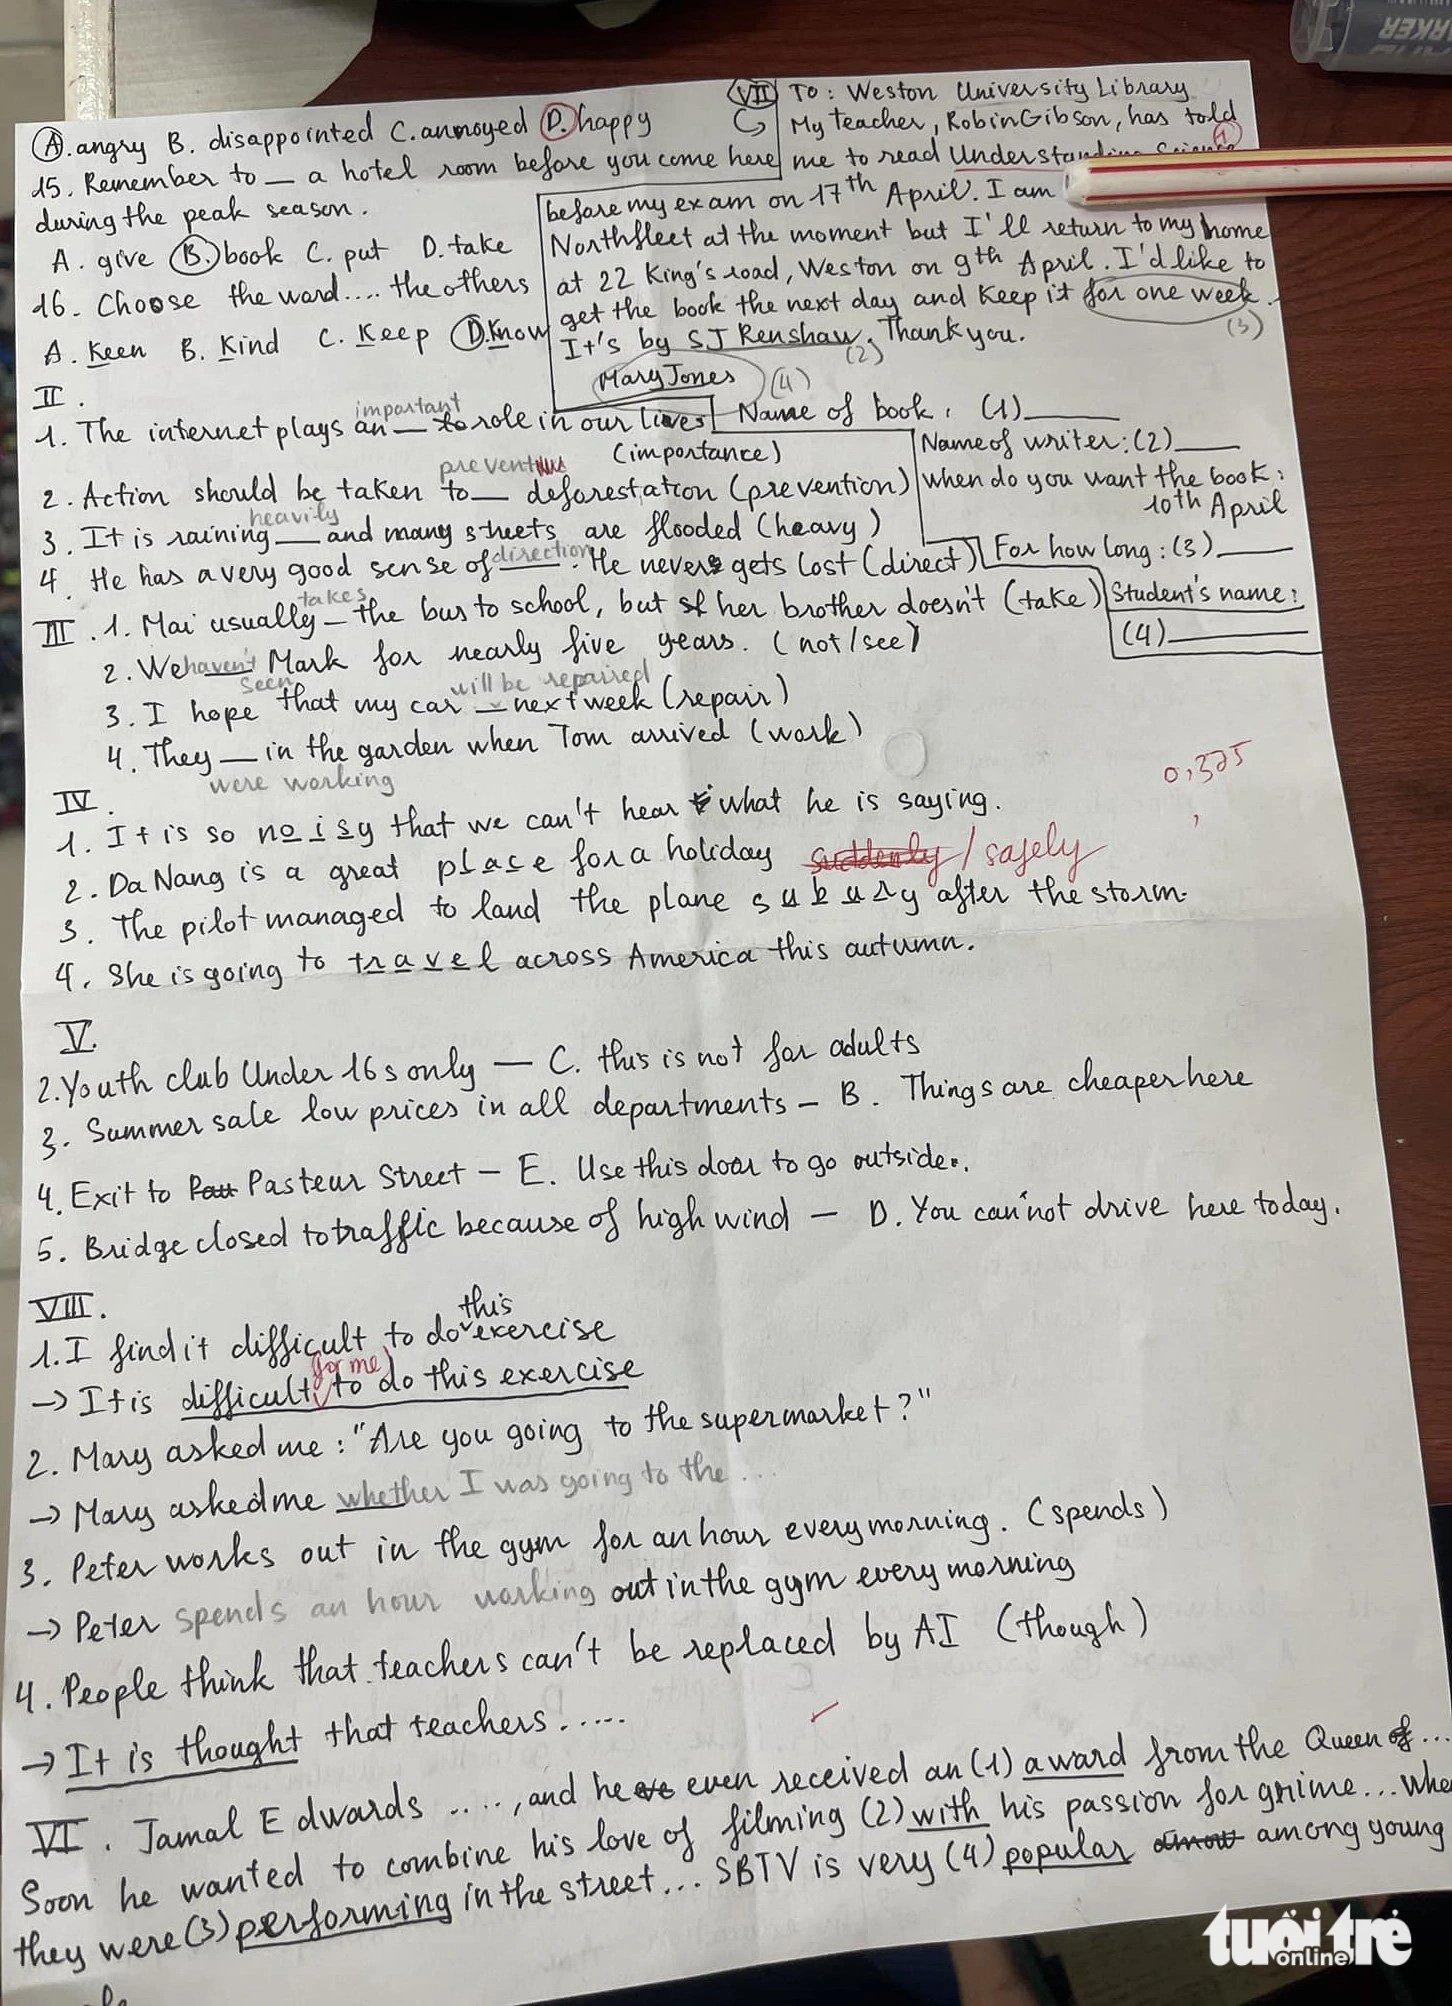 A. angry B. disappointed C. annoyed D. happy
15. Remember to _ a hotel room before you come here
during the peak season.
A. give B. book C. put D. take
16. Choose the word.... the others
A. Keen B. Kind C. Keep D. Know
VII To: Weston University Library
My teacher, Robin Gibson, has told
me to read Understanding Science (1)
before my exam on 17th April. I am
Northfleet at the moment but I'll return to my home
at 22 King's road, Weston on 9th April. I'd like to
get the book the next day and keep it for one week.
(3)
It's by SJ Renshaw. Thank you.
(2)
Mary Jones (4)
Name of book: (1)____
Name of writer: (2)____
When do you want the book:
10th April
For how long: (3)____
Student's name:
(4)____
II.
important
1. The internet plays an __ role in our lives
(importance)
prevent
2. Action should be taken to __ deforestation (prevention)
heavily
3. It is raining __ and many streets are flooded (heavy)
4. He has a very good sense of direction. He never gets lost (direct)
takes
III. 1. Mai usually _ the bus to school, but her brother doesn't (take)
2. We haven't Mark for nearly five years. (not/see)
seen will be repaired
3. I hope that my car _ next week (repair)
4. They _ in the garden when Tom arrived (work)
were working
0,375
IV.
1. It is so noisy that we can't hear what he is saying.
2. Da Nang is a great place for a holiday suddenly / safely
3. The pilot managed to land the plane s y after the storm.
4. She is going to travel across America this autumn.
V.
2. Youth club Under 16s only — C. this is not for adults
3. Summer sale low prices in all departments - B. Things are cheaper here
4. Exit to Pasteur Street - E. Use this door to go outside.
5. Bridge closed to traffic because of high wind - D. You cannot drive here today.
VIII.
this
1. I find it difficult to do exercise
for me
→ It is difficult to do this exercise
2. Mary asked me: "Are you going to the supermarket?"
→ Mary asked me whether I was going to the ...
3. Peter works out in the gym for an hour every morning. (spends)
→ Peter spends an hour working out in the gym every morning
4. People think that teachers can't be replaced by AI (though)
→ It is thought that teachers.....
VI. Jamal Edwards ...., and he even received an (1) award from the Queen ...
Soon he wanted to combine his love of filming (2) with his passion for grime... When
they were (3) performing in the street... SBTV is very (4) popular among young
tuổi trẻ
online